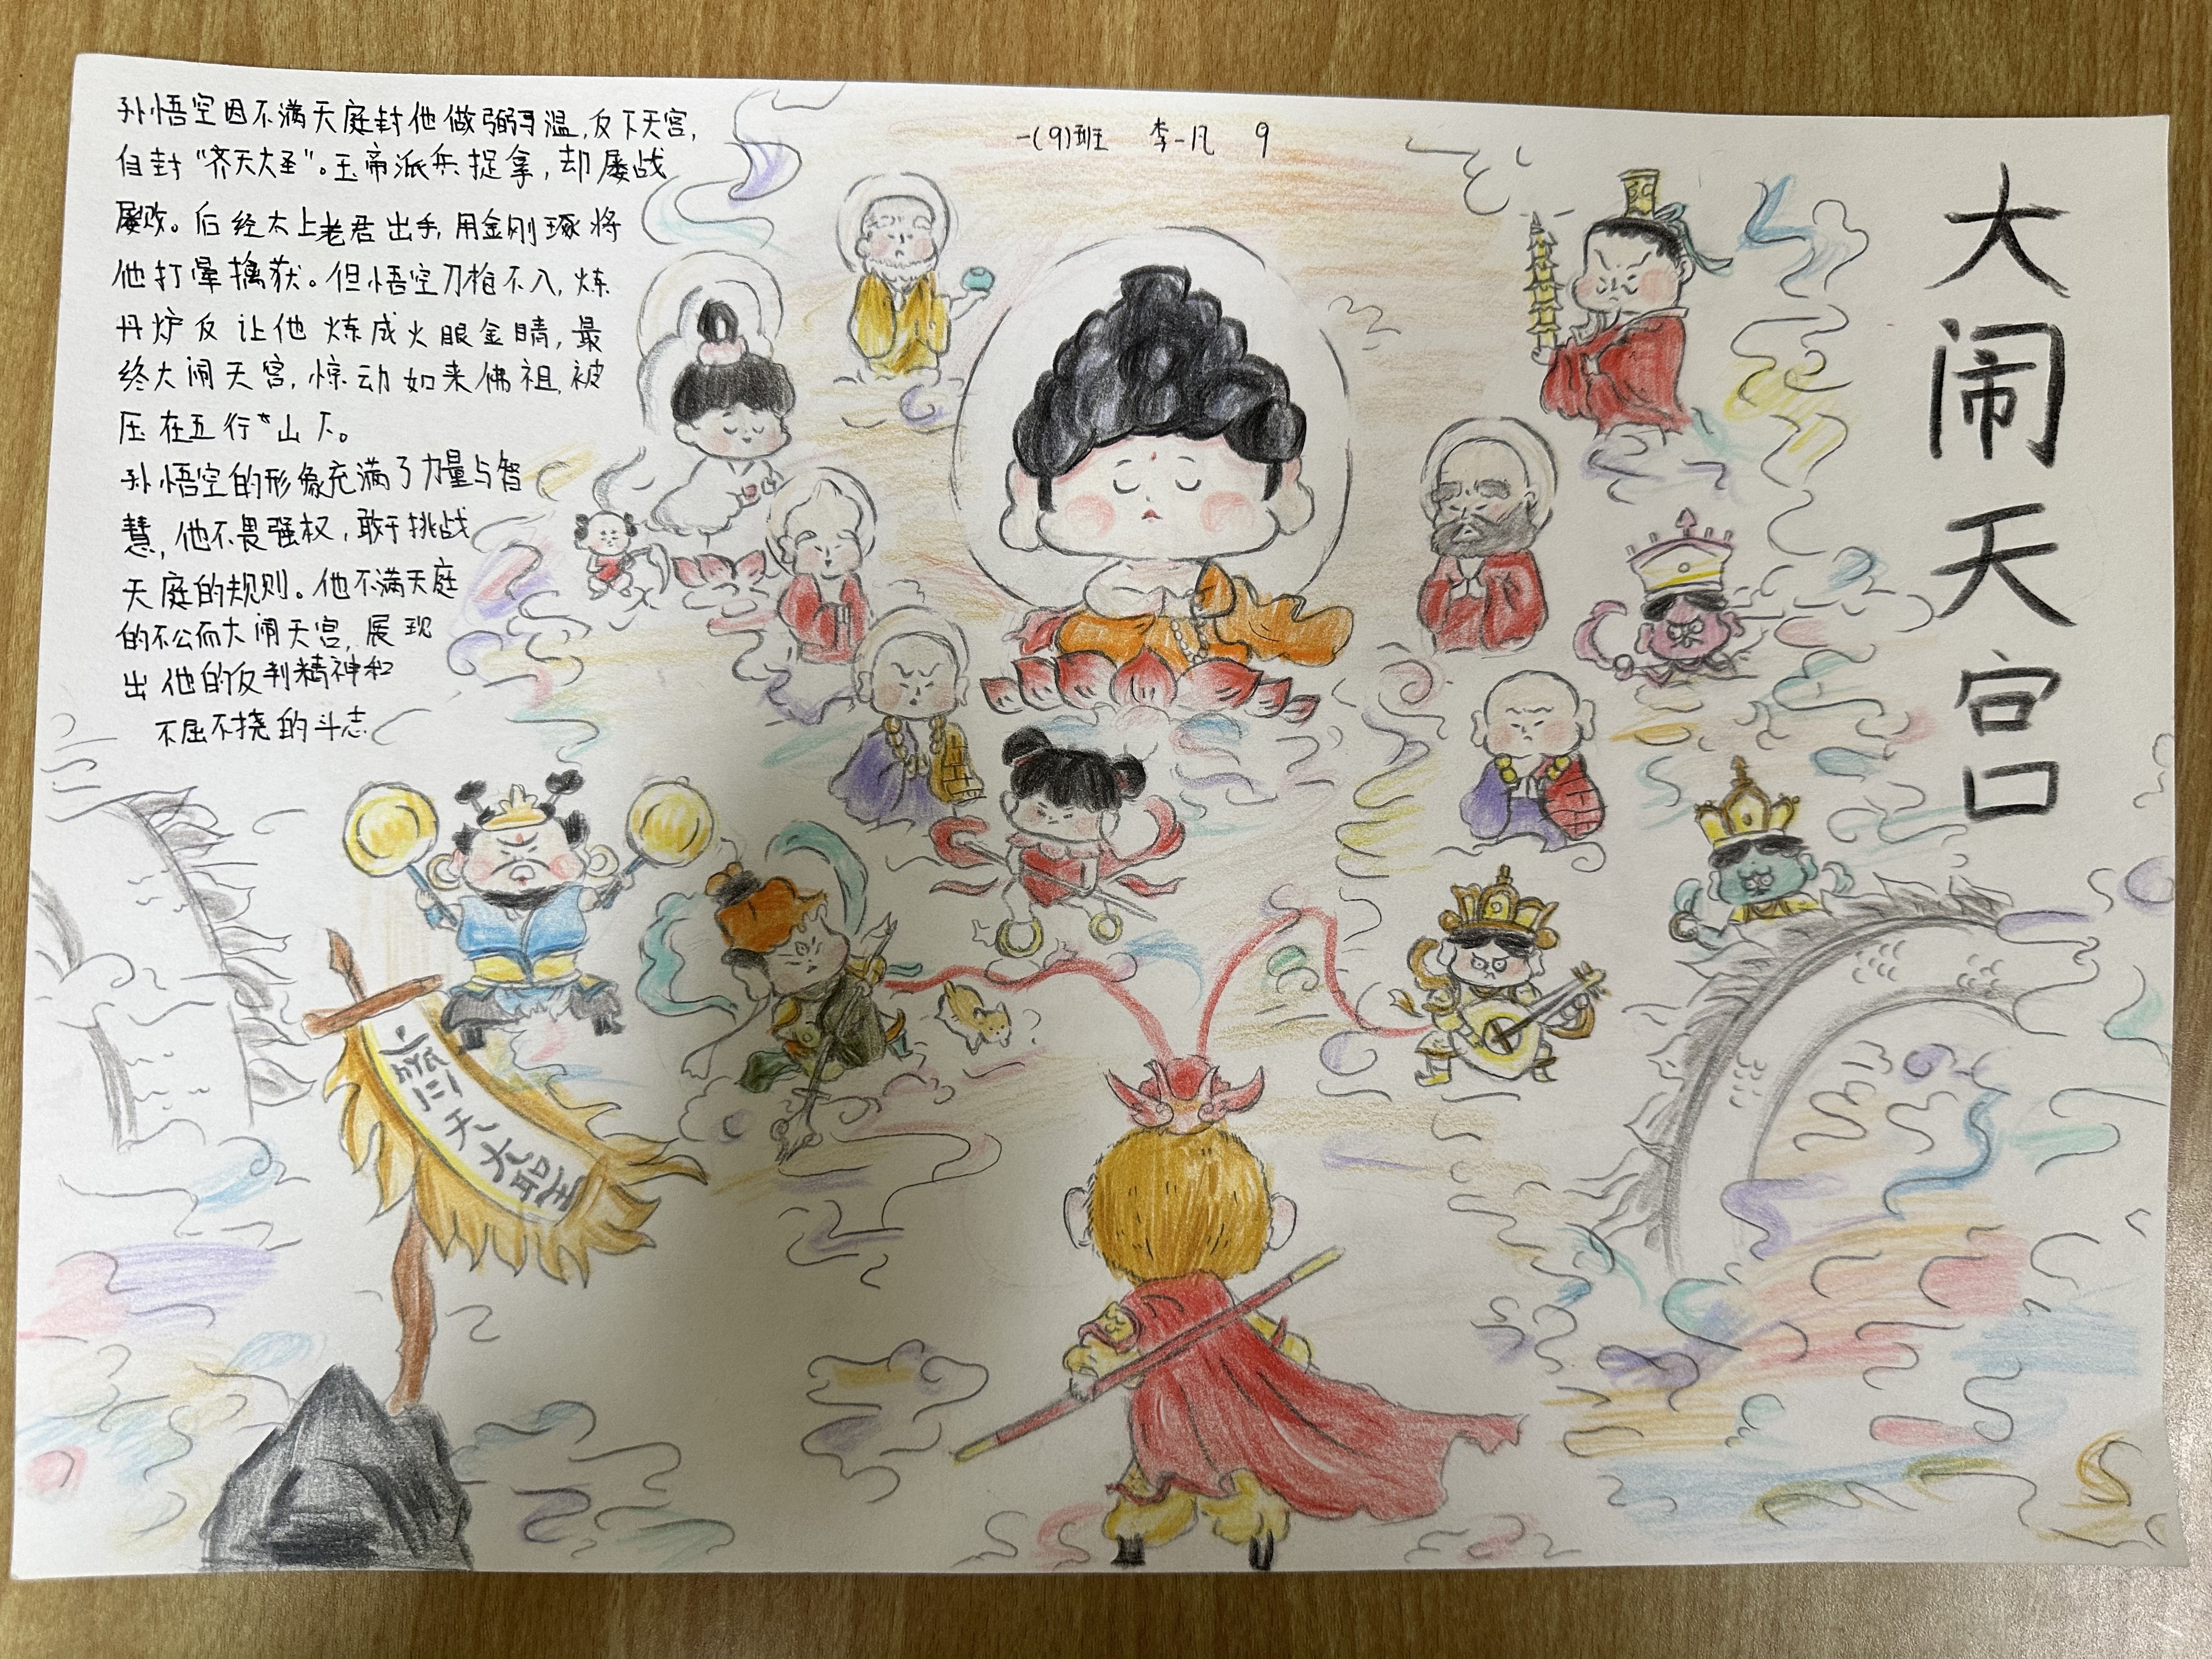 孙悟空因不满天庭封他做弼马温,反下天宫,
自封“齐天大圣”。玉帝派兵捉拿,却屡战
屡败。后经太上老君出手,用金刚琢将
他打晕擒获。但悟空刀枪不入,炼
丹炉反让他炼成火眼金睛,最
终大闹天宫,惊动如来佛祖,被
压在五行山下。
孙悟空的形象充满了力量与智
慧,他不畏强权,敢于挑战
天庭的规则。他不满天庭
的不公而大闹天宫,展现
出他的反判精神和
不屈不挠的斗志
一(9)班 李一凡 9
大闹天宫
齊天大聖